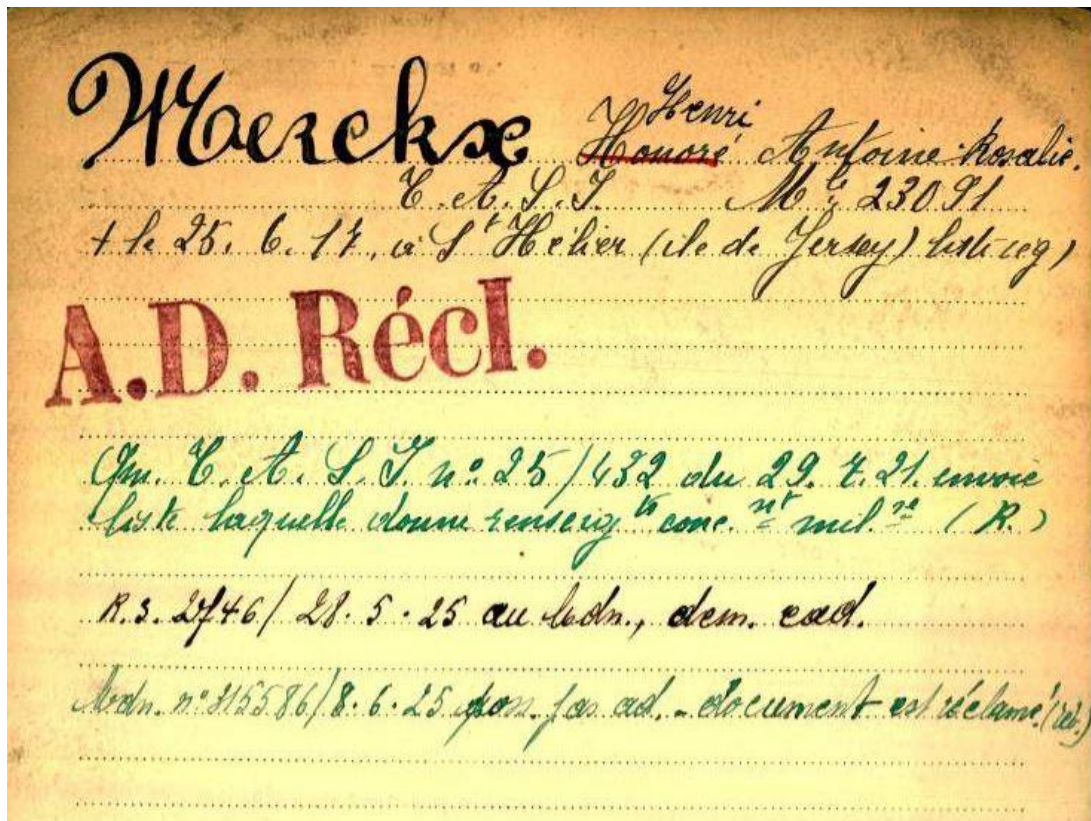 Merckx Henri
Honoré Antoine Rosalie.
C.A.S.I. Mle 23091
+ le 25.6.17, à St Hélier (ile de Jersey)
A.D. Récl.
C.A.S.I n° 25/432 du 29.7.21. envoie
liste laquelle donne renseigts conc.nt mil.re (R.)
R.S. 2746/ 28.5.25 au Cdn., dem. ead.
n° 415586/8.6.25 pas ad. - document est réclamé.